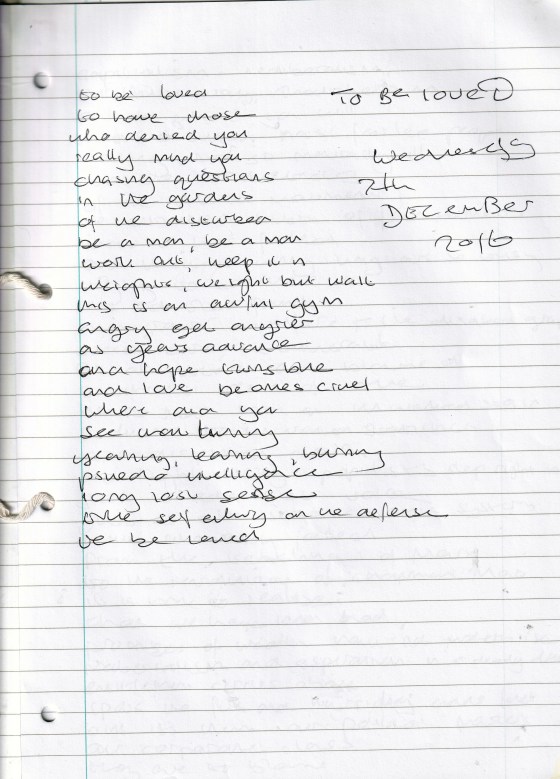 TO BE LOVED
Wednesday
7th
DECEMBER
2016
to be loved
to have those
who denied you
really mind you
chasing questions
in the gardens
of the disturbed
be a man, be a man
work out, keep it in
weights, weight but wait
this is an awful gym
angry get angrier
as years advance
and hope turns
and love becomes cruel
where did you
see turning
yearning, learning, burning
psuedo intelligence
long lost sense
self on the defense
be loved